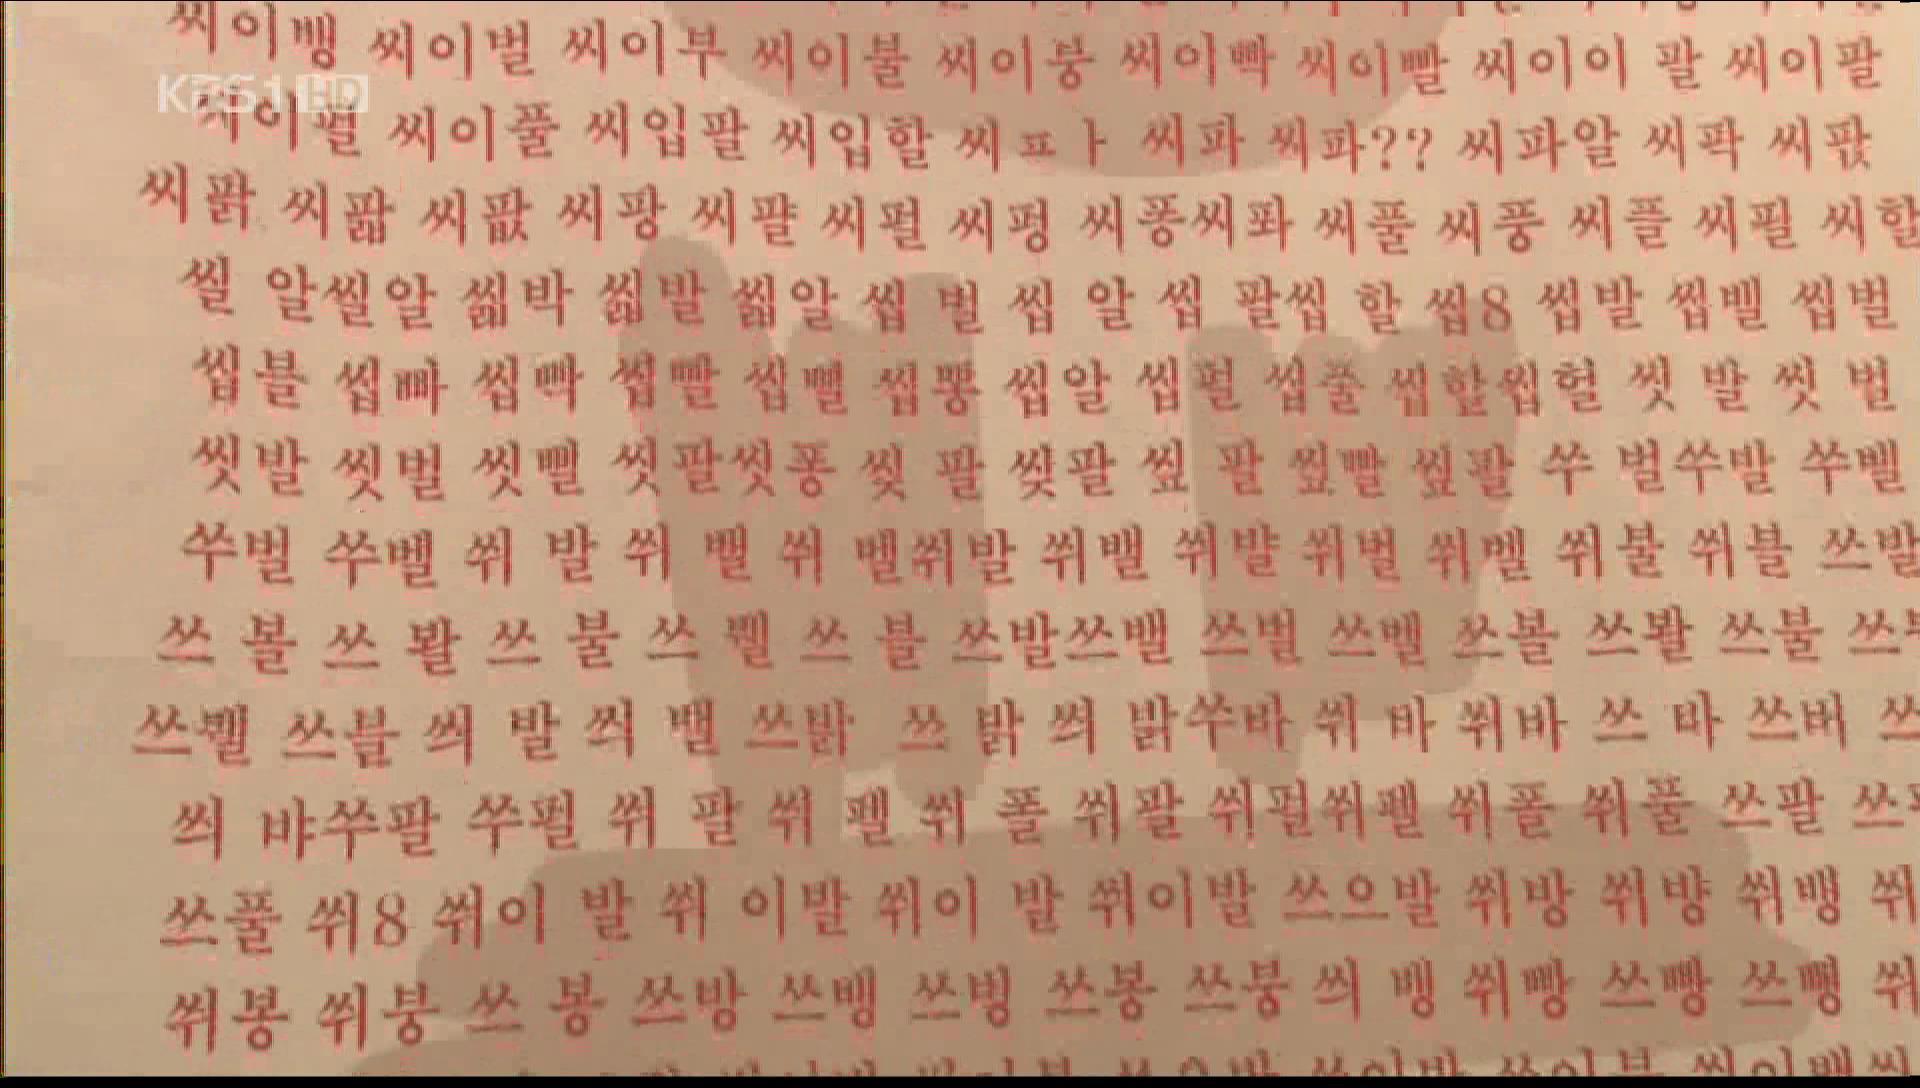 씨이뺑 씨이벌 씨이부 씨이불 씨이붕 씨이빡 씨이빨 씨이이 팔 씨이팔
KBS1 HD
씨이펄 씨이풀 씨입팔 씨입할 씨ㅍㅏ 씨파 씨파?? 씨파알 씨팍 씨팏
씨팕 씨팖 씨팞 씨팡 씨퍌 씨펄 씨펑 씨퐁씨퐈 씨풀 씨풍 씨플 씨필 씨할
씰 알씰알 씲박 씳발 씳알 씹 벌 씹 알 씹 팔씹 할 씹8 씹발 씹벨 씹벌
씹블 씹빠 씹빡 씹빨 씹뻘 씹뽕 씹알 씹펄 씹풀 씹할씹헐 씻 발 씻 벌
씻발 씻벌 씻뻴 씻팔씻퐁 씾 팔 씾팔 씿 팔 씿빨 씿팔 쑤 벌쑤발 쑤벨
쑤벌 쑤벨 쒸 발 쒸 뱰 쒸 벨쒸발 쒸밸 쒸뱔 쒸벌 쒸벨 쒸불 쒸블 쓰발
쓰 볼 쓰 봘 쓰 불 쓰 벨 쓰 블 쓰발쓰밸 쓰벌 쓰벨 쓰볼 쓰봘 쓰불
쓰벨 쓰블 씌 발 씌 밸 쓰밝 쓰 밝 씌 밝쑤바 쒸 바 쒸바 쓰 바 쓰버
씌 바쑤팔 쑤펄 쒸 팔 쒸 펠 쒸 폴 쒸팔 쒸펄쒸펠 쒸폴 쒸풀 쓰팔
쓰풀 쒸8 쒸이 발 쒸 이발 쒸이 발 쒸이발 쓰으발 쒸방 쒸뱡 쒸뱅
쒸봉 쒸붕 쓰 봉 쓰방 쓰뱅 쓰벙 쓰봉 쓰붕 씌 벵 쒸빵 쓰빵 쓰뺑